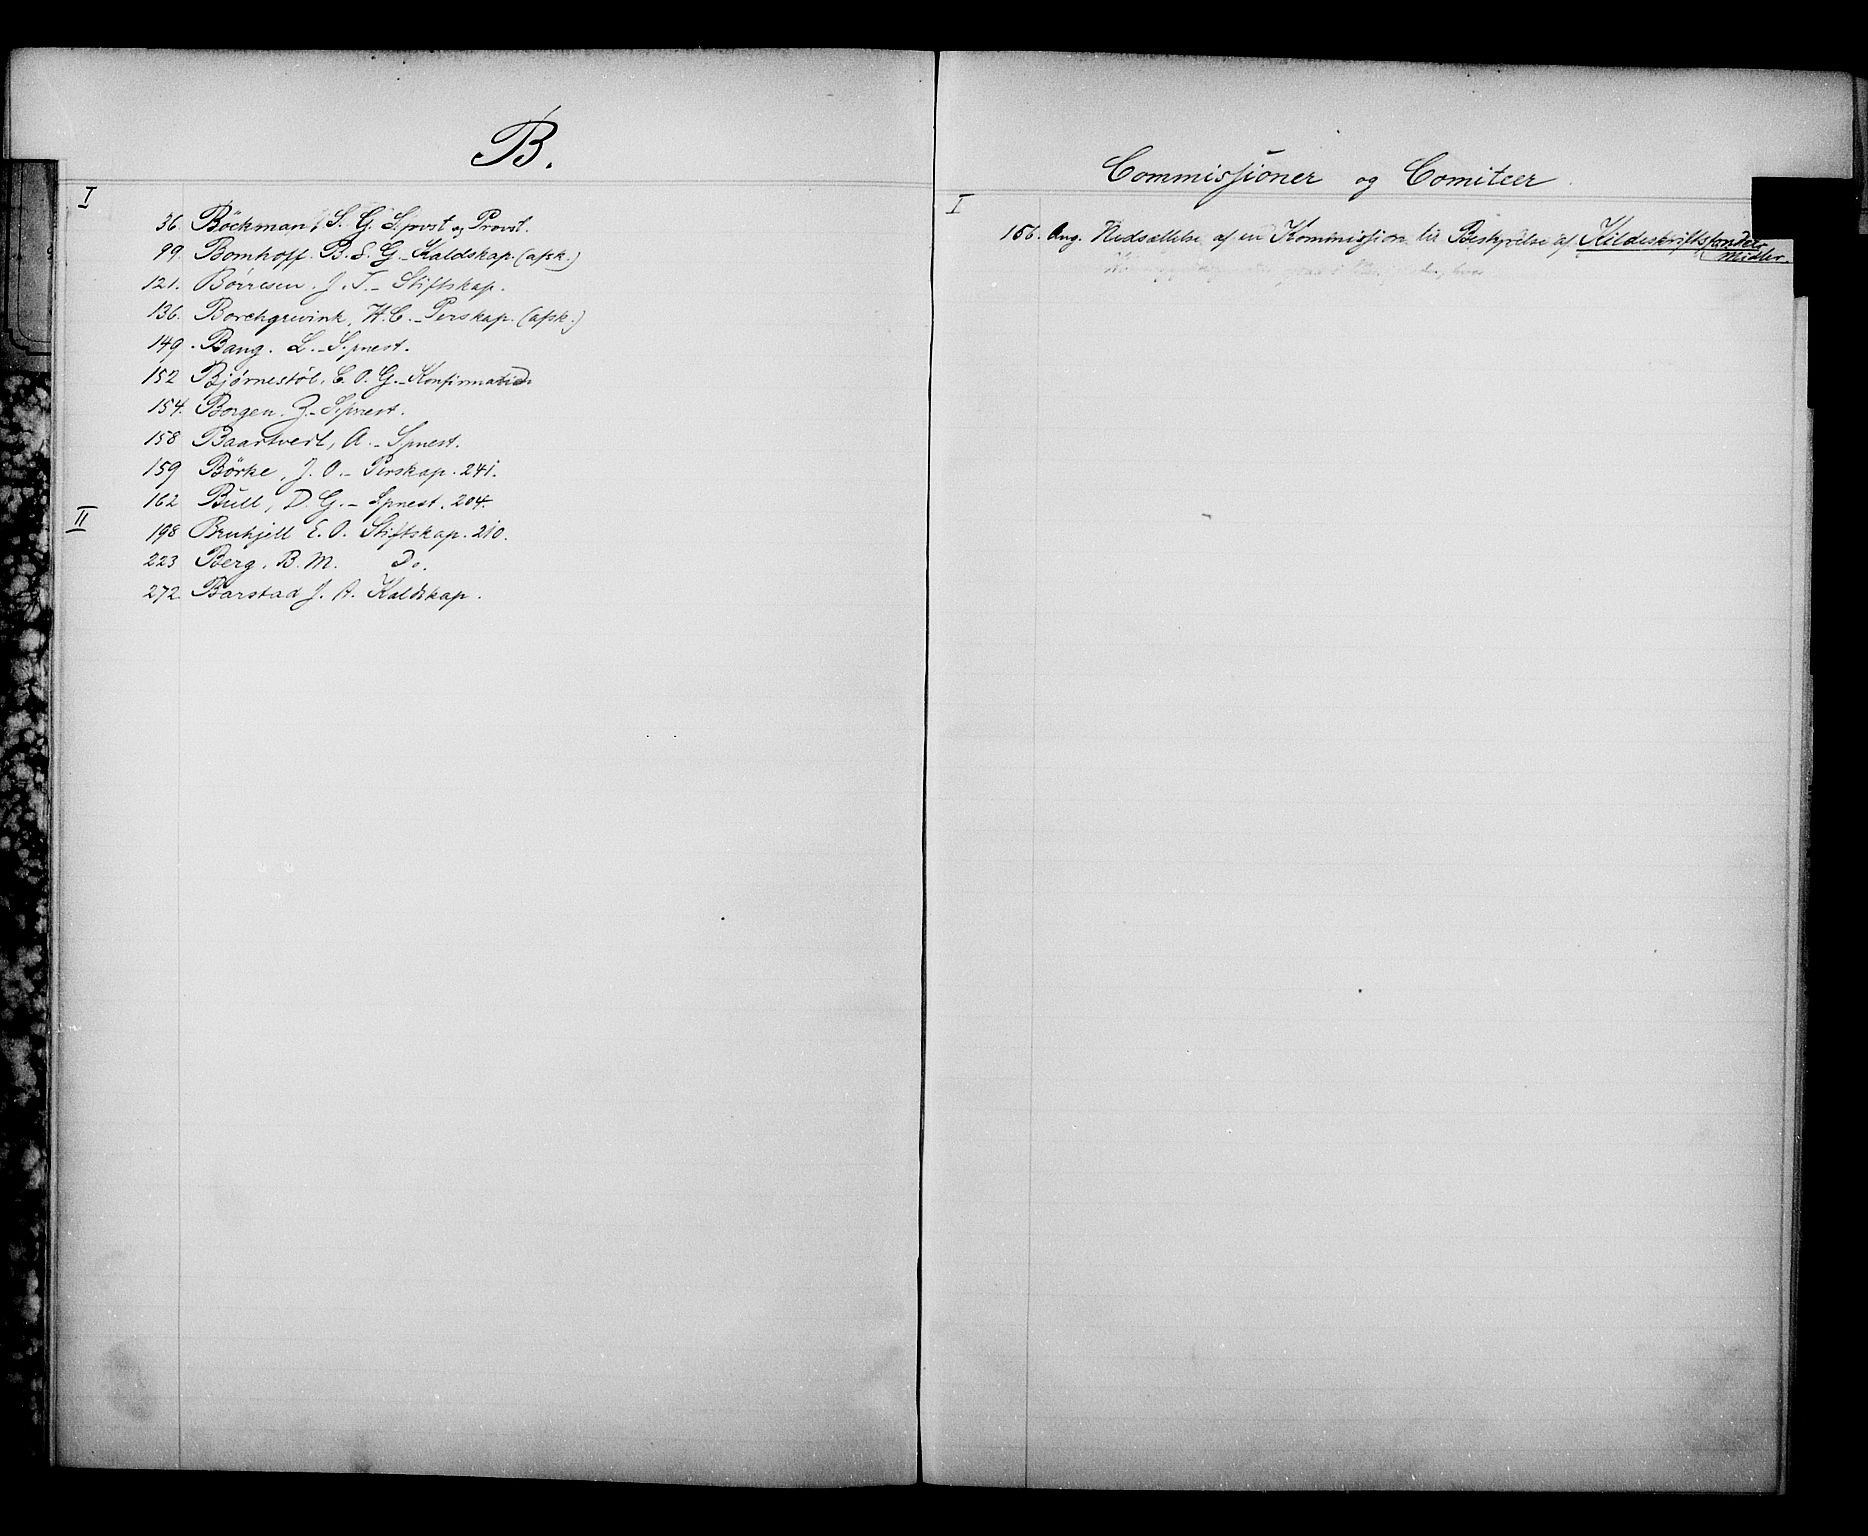 B.
I
36. Böckman, S. G. S.prst og Provst.
99. Bomhoff. B. S. G - Kaldskap. (afsk.)
121. Börresen. J. T. - Stiftskap.
136. Borchgrevink, H. C. - Perskap. (afsk.)
149. Bang. L. - S.prest.
152 Bjørnestöl, C. O. G. - Konfirmation
154. Borgen. Z. - S.prest.
158 Baartvedt, A. - Sprest.
159 Börke, J. O. - Perskap. 241.
162 Bull, D. G. - Sprest. 204.
II
198 Bruhjell E. O. Stiftskap. 210.
223 Berg. B. M. Do.
272. Barstad J. A. Kaldskap.
Commissioner og Comiteer.
I
156. Ang. Nedsættelse af en Kommission til Bestyrelse af Kildeskriftsfondets
Midler.